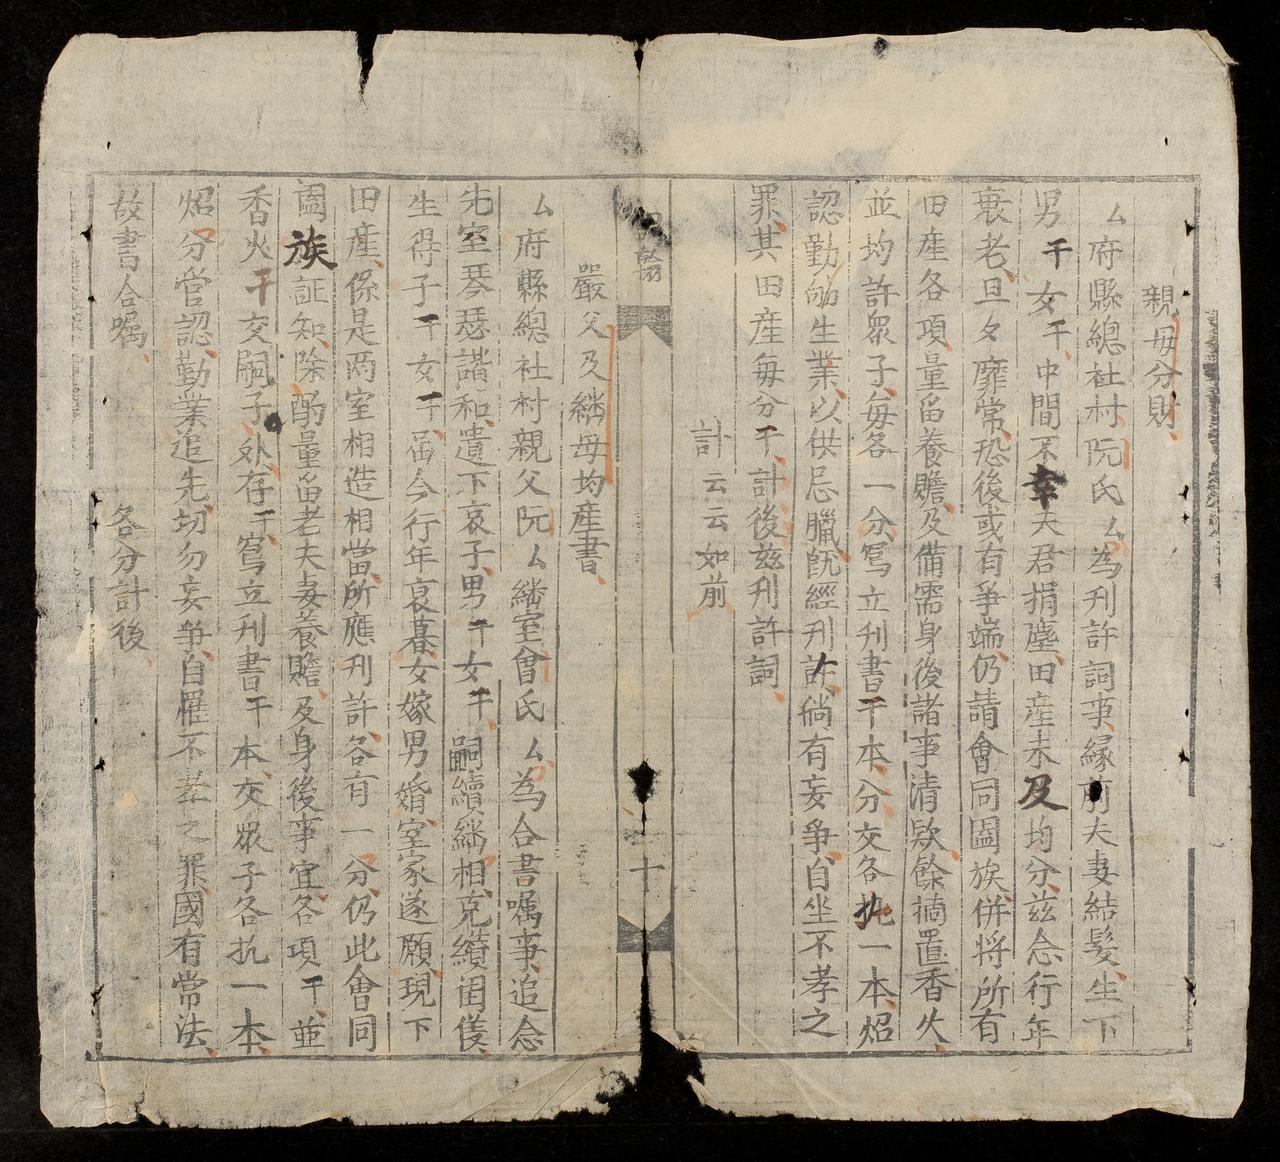 親母分財
厶府縣總社村阮氏厶為刋許詞事緣前夫妻結髮生下
男干女干中間不幸夫君捐塵田産未及均分玆念行年
衰老旦夕靡常恐後或有爭端仍請會同闔族併將所有
田産各項量留養贍及備需身後諸事清欵餘摘置香火
並均許衆子每各一分寫立刋書干本分交各执一本炤
認勤劬生業以供忌臘旣經刋許倘有妄爭自坐不孝之
罪其田産每分干計後玆刋許詞
計云云如前
翰
十
嚴父及繼母均産書
厶府縣總社村親父阮厶繼室曾氏厶為合書嘱事追念
先室琴瑟諧和遺下哀子男干女干嗣續繼相克纘閨儀
生得子干女干届今行年衰暮女嫁男婚室家遂願現下
田産係是两室相造相當所應刋許各有一分仍此會同
闔族証知除酌量留老夫妻養贍及身後事宜各項干並
香火干交嗣子外存干寫立刋書干本交衆子各执一本
炤分営認勤業追先切勿妄爭自罹不孝之罪國有常法
故書合嘱 各分計後